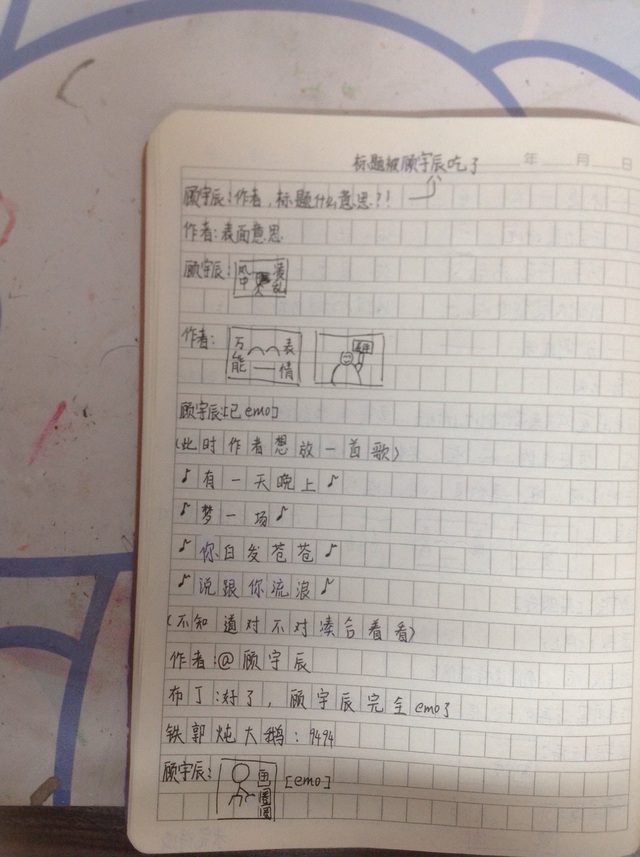 标题被顾宇辰吃了 年 月 日
顾宇辰:作者,标题什么意思?!
作者:表面意思
顾宇辰:风中凌乱
作者:万能表情
顾宇辰:[已emo]
(此时作者想放一首歌)
♪有一天晚上♪
♪梦一场♪
♪你白发苍苍♪
♪说跟你流浪♪
(不知道对不对凑合看看)
作者:@顾宇辰
布丁:好了,顾宇辰完全emo了
铁郭炖大鹅:9494
顾宇辰:画圈圈 [emo]